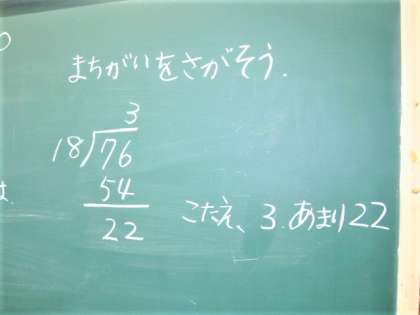 まちがいをさがそう.
3
18)76
54
22
こたえ、3.あまり22